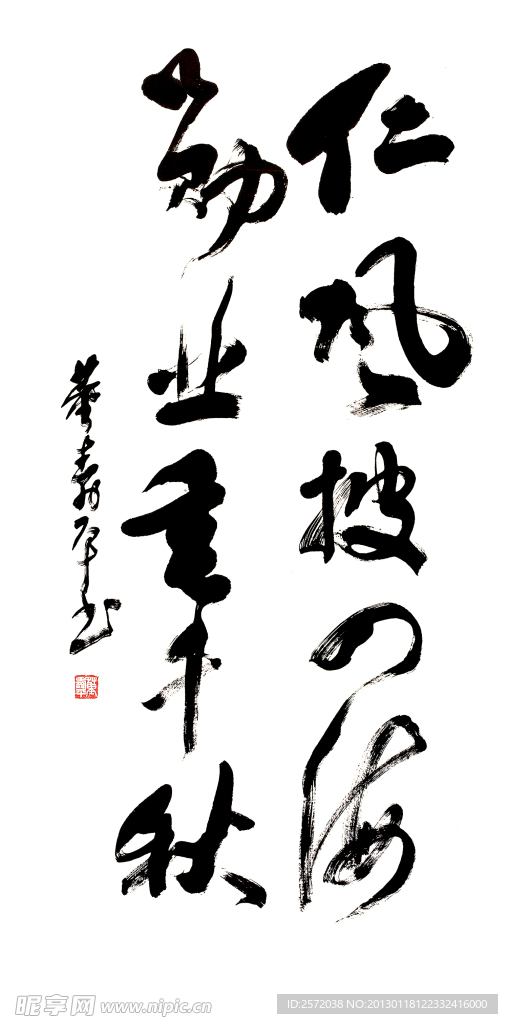 仁风披四海
勋业重千秋
董寿平书
昵享网 www.nipic.cn
ID:2572038 NO:20130118122332416000